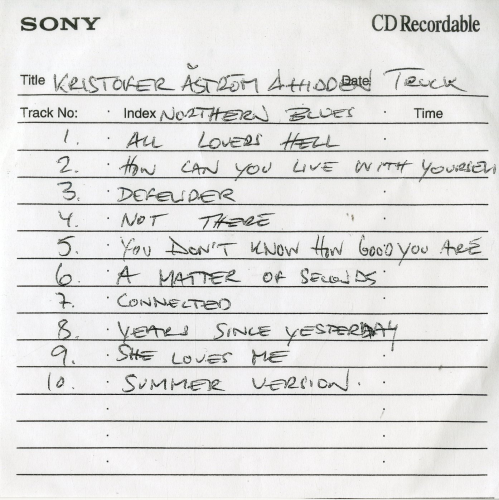 SONY CD Recordable
Title KRISTOFER ÅSTRÖM & HIDDEN Date TRUCK
Track No: Index NORTHERN BLUES Time
1. ALL LOVERS HELL
2. HOW CAN YOU LIVE WITH YOURSELF
3. DEFENDER
4. NOT THERE
5. YOU DON'T KNOW HOW GOOD YOU ARE
6. A MATTER OF SECONDS
7. CONNECTED
8. YEARS SINCE YESTERDAY
9. SHE LOVES ME
10. SUMMER VERSION.